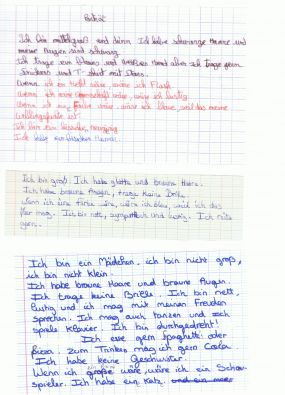 Porträt
Ich bin mittelgroß und dünn Ich habe schwarze Haare und
meine Augen sind schwarz
Ich trage ein blauen und weißen Hemd aber ich trage gern
Sneakers und T-Shirt mit Jeans.
Wenn ich ein Held wäre, wäre ich Flash
Wenn ich eine wäre, wäre ich lustig
Wenn ich eine Farbe wäre, wäre ich blau, weil das meine
Lieblingsfarbe ist
Ich bin ein bisschen neugierig
Ich habe
Ich bin groß. Ich habe glatte und braune Haare.
Ich habe braune Augen, trage keine Brille
Wenn ich eine Farbe wäre, wäre ich blau, weil ich das
Meer mag. Ich bin nett, sympathisch und lustig. Ich
gern.
Ich bin ein Mädchen. ich bin nicht groß,
ich bin nicht klein.
Ich habe braune Haare und braune Augen.
Ich trage keine Brille. Ich bin nett,
lustig und ich mag mit meinen Freuden
sprechen. Ich mag auch tanzen und ich
spiele Klavier. Ich bin durchgedreht!
Ich esse gern Spaghetti oder
Pizza. Zum Trinken mag ich gern Coca.
Ich habe keine Geschwister.
Wenn ich große wäre, wäre ich ein Schau-
spieler. Ich habe ein Katz.